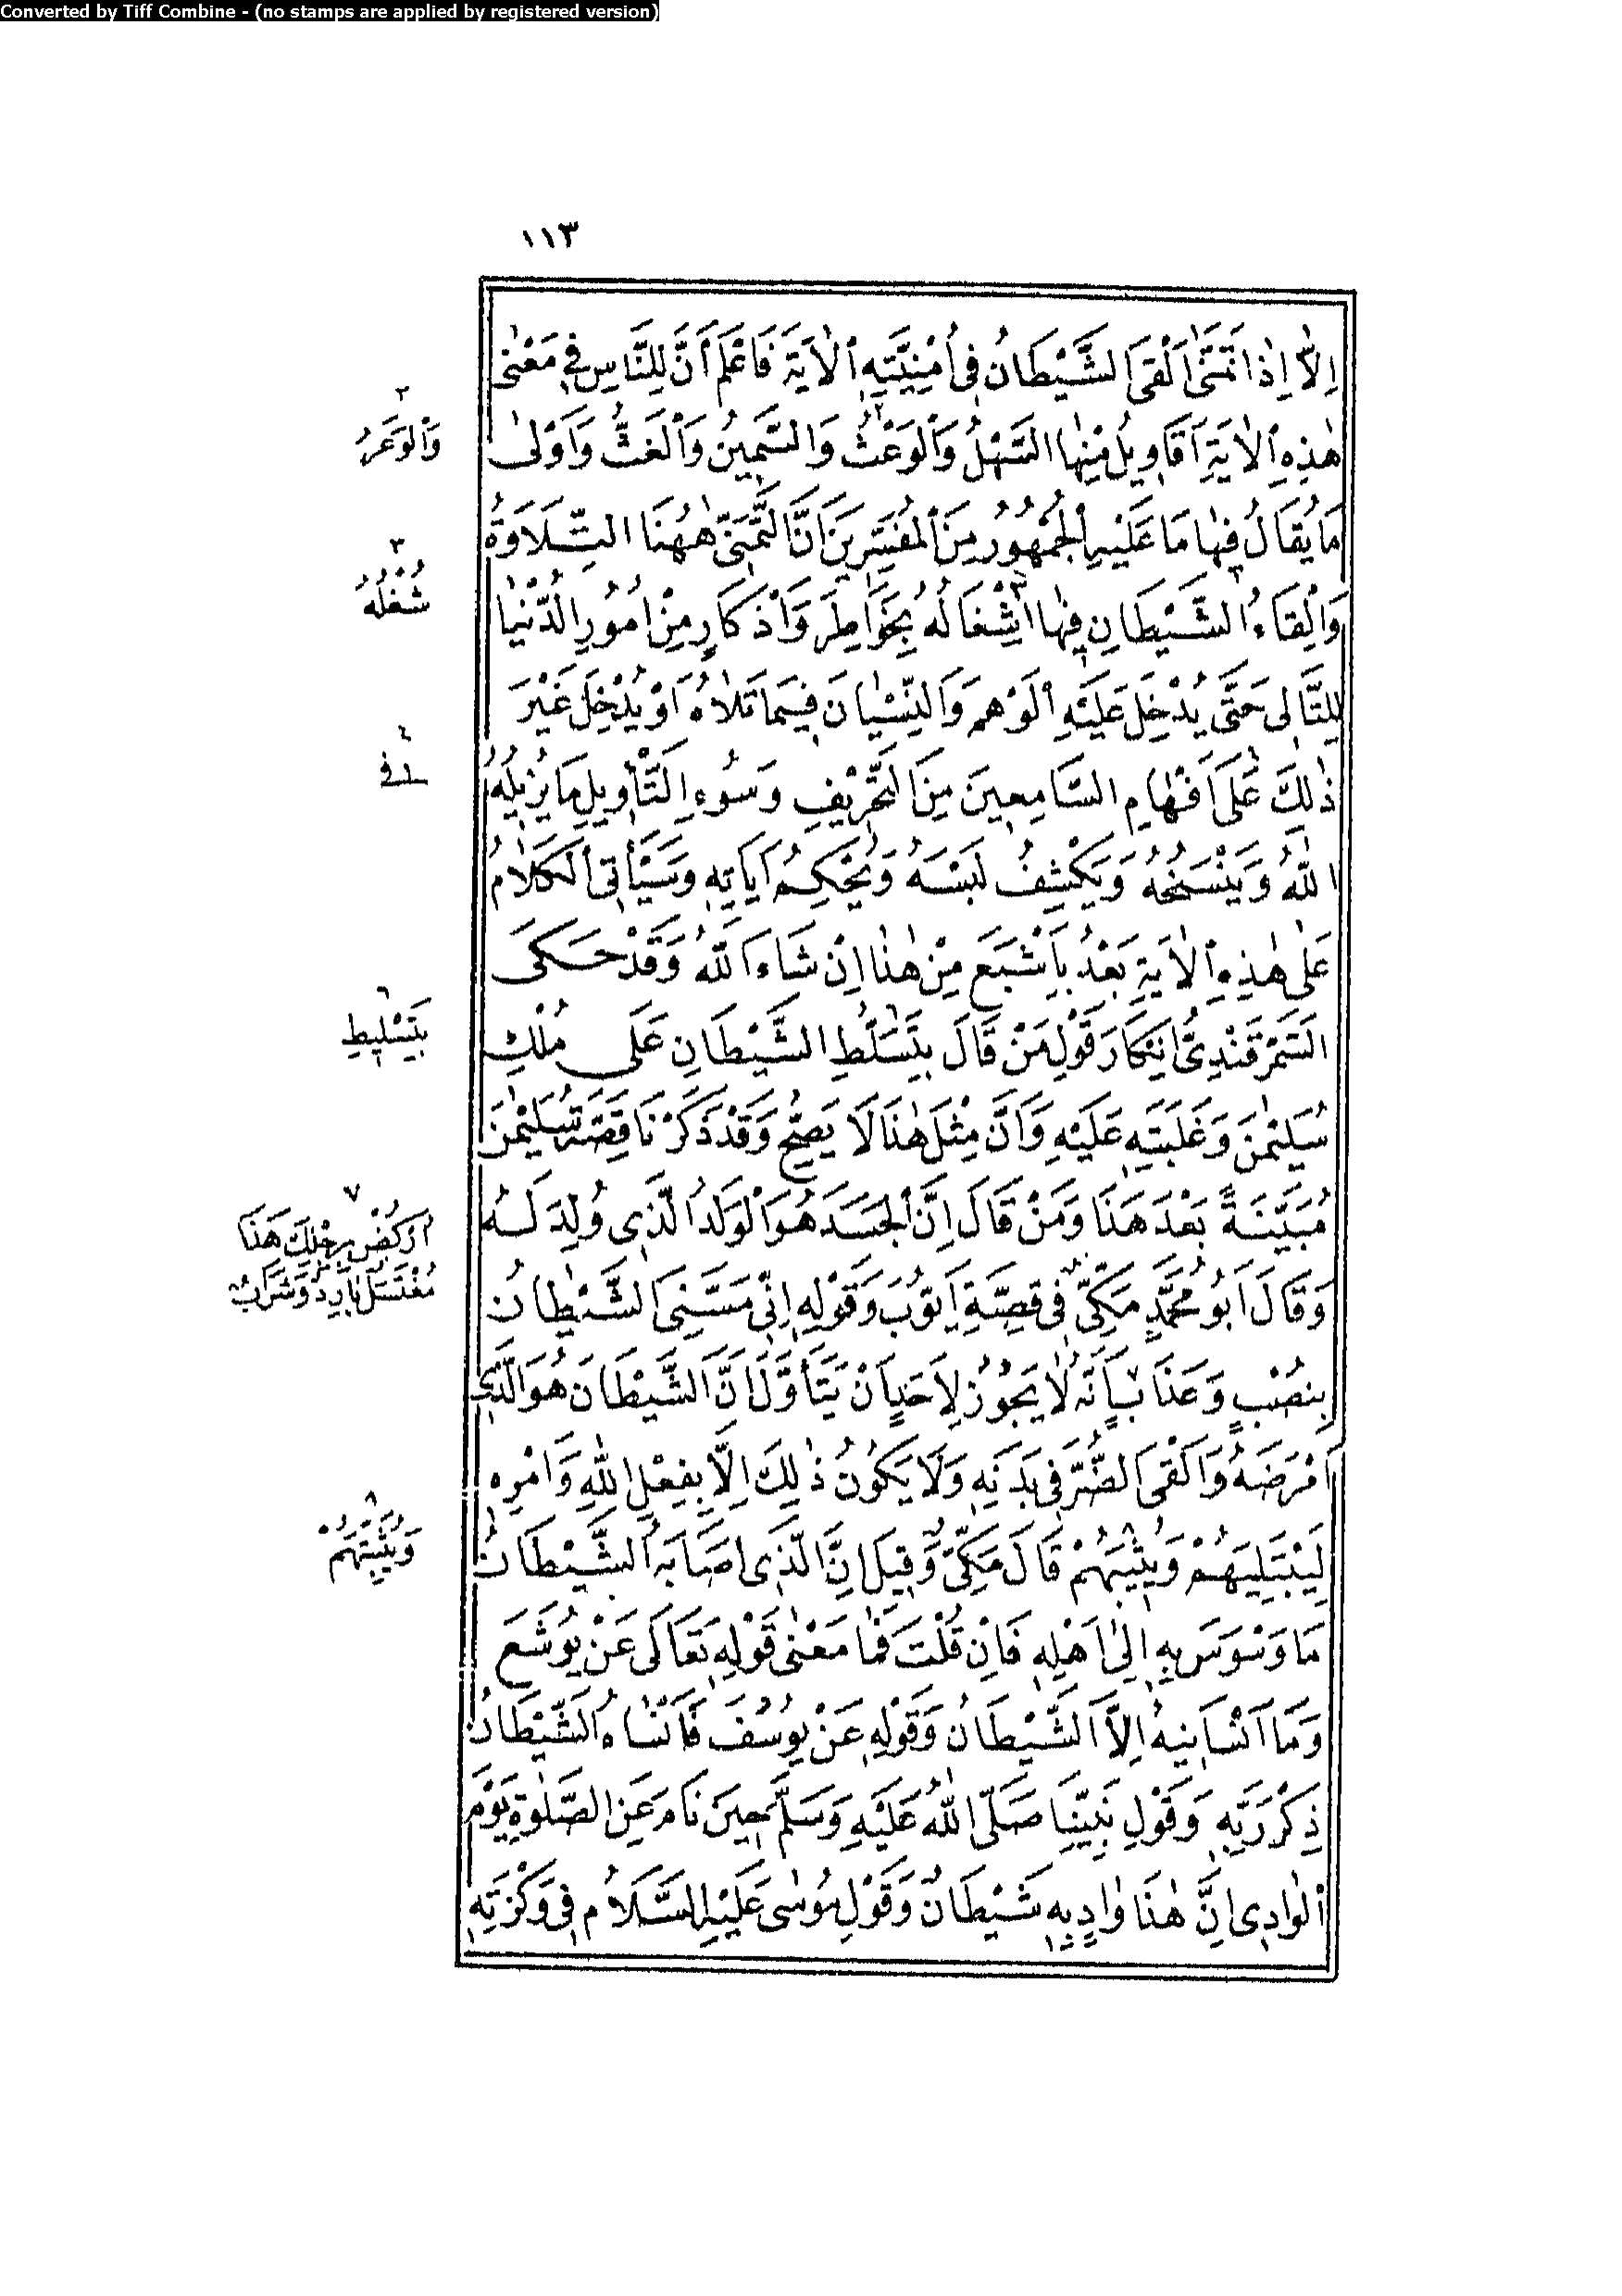 Converted by Tiff Combine - (no stamps are applied by registered version)
١١٣
اِلَّا اِذَا تَمَنّٰى اَلْقَى الشَّيْطَانُ فِى اُمْنِيَّتِهِ الْاٰيَةَ فَاعْلَمْ اَنَّ لِلنَّاسِ فِى مَعْنٰى
هٰذِهِ الْاٰيَةِ اَقَاوِيلُ مِنْهَا السَّهْلُ وَالْوَعْثُ وَالسَّمِينُ وَالْغَثُّ وَاَوْلٰى
مَا يُقَالُ فِيهَا مَا عَلَيْهِ الْجُمْهُورُ مِنَ الْمُفَسِّرِينَ اَنَّ التَّمَنِّىَ هٰهُنَا التِّلَاوَةُ
وَاِلْقَاءُ الشَّيْطَانِ فِيهَا اِشْغَالُهُ بِخَوَاطِرَ وَاَذْكَارٍ مِنْ اُمُورِ الدُّنْيَا
لِلتَّالِى حَتّٰى يُدْخِلَ عَلَيْهِ الْوَهْمَ وَالنِّسْيَانَ فِيمَا تَلَاهُ اَوْ يُدْخِلَ غَيْرَ
ذٰلِكَ عَلَى اَفْهَامِ السَّامِعِينَ مِنَ التَّحْرِيفِ وَسُوءِ التَّأْوِيلِ مَا يُزِيلُهُ
اللّٰهُ وَيَنْسَخُهُ وَيَكْشِفُ لَبْسَهُ وَيُحْكِمُ اٰيَاتِهِ وَسَيَأْتِى الْكَلَامُ
عَلٰى هٰذِهِ الْاٰيَةِ بَعْدُ بِاَشْبَعَ مِنْ هٰذَا اِنْ شَاءَ اللّٰهُ وَقَدْ حَكَى
السَّمَرْقَنْدِىُّ اِنْكَارَ قَوْلِ مَنْ قَالَ بِتَسَلُّطِ الشَّيْطَانِ عَلَى مُلْكِ
سُلَيْمٰنَ وَغَلَبَتِهِ عَلَيْهِ وَاَنَّ مِثْلَ هٰذَا لَا يَصِحُّ وَقَدْ ذَكَرْنَا قِصَّةَ سُلَيْمٰنَ
مُبَيَّنَةً بَعْدَ هَذَا وَمَنْ قَالَ اِنَّ الْجَسَدَ هُوَ الْوَلَدُ الَّذِى وُلِدَ لَهُ
وَقَالَ اَبُو مُحَمَّدٍ مَكِّىٌّ فِى قِصَّةِ اَيُّوبَ وَقَوْلِهِ اِنِّى مَسَّنِىَ الشَّيْطَانُ
بِنُصْبٍ وَعَذَابٍ اَنَّهُ لَا يَجُوزُ لِاَحَدٍ اَنْ يَتَأَوَّلَ اَنَّ الشَّيْطَانَ هُوَ الَّذِى
اَمْرَضَهُ وَاَلْقَى الضُّرَّ فِى بَدَنِهِ وَلَا يَكُونُ ذٰلِكَ اِلَّا بِفِعْلِ اللّٰهِ وَاَمْرِهِ
لِيَبْتَلِيَهُمْ وَيُثِيبَهُمْ قَالَ مَكِّىٌّ وَقِيلَ اِنَّ الَّذِى اَصَابَهُ الشَّيْطَانُ
مَا وَسْوَسَ بِهِ اِلٰى اَهْلِهِ فَاِنْ قُلْتَ فَمَا مَعْنٰى قَوْلِهِ تَعَالَى عَنْ يُوشَعَ
وَمَا اَنْسَانِيهُ اِلَّا الشَّيْطَانُ وَقَوْلِهِ عَنْ يُوسُفَ فَاَنْسَاهُ الشَّيْطَانُ
ذِكْرَ رَبِّهِ وَقَوْلِ نَبِيِّنَا صَلَّى اللّٰهُ عَلَيْهِ وَسَلَّمَ حِينَ نَامَ عَنِ الصَّلٰوةِ يَوْمَ
الْوَادِى اِنَّ هٰذَا وَادٍ بِهِ شَيْطَانٌ وَقَوْلِ مُوسٰى عَلَيْهِ السَّلَامُ فِى وَكْزَتِهِ
٢
وَالْوَعَرُ
٣
شُغْلُهُ
٤
٦
بِتَسْلِيطِ
٧
اُرْكُضْ بِرِجْلِكَ هَذَا
مُغْتَسَلٌ بَارِدٌ وَشَرَابٌ
٨
وَيُثَبِّتَهُمْ